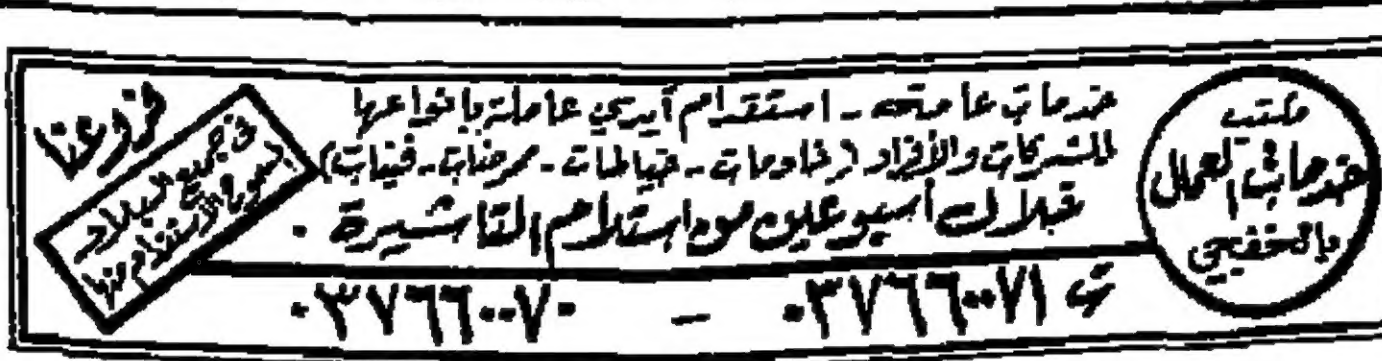 مكتب
خدمات العمال
بالخفجي
خدمات عامه - استقدام أيدي عاملة بانواعها
للشركات والأفراد (خادمات - خياطات - ممرضات - فنيات)
خلال أسبوعين من استلام التاشيرة .
ت ٠٣٧٦٦٠٠٧١ - ٠٣٧٦٦٠٠٧٠
فروعنا
في جميع البلاد
المسموح الاستقدام منها